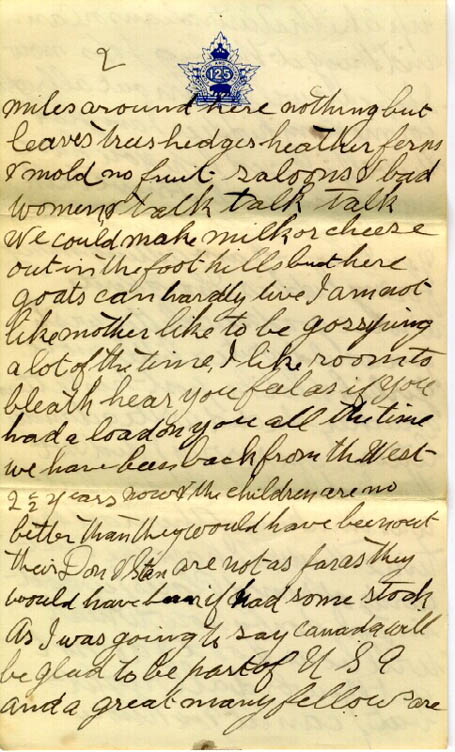 2
125
miles around here nothing but
leaves trees hedges heather ferns
& mold no fruit - saloons & bad
women & talk talk talk
We could make milk or cheese
out in the foot hills but here
goats can hardly live I am not
like mother like to be gossyping
a lot of the time, I like room to
bleath hear you feel as if you
had a load on you all the time
we have been back from the West
2 1/2 years now & the children are no
better than they would have been out
their Don & Stan are not as far as they
would have been if had some stock
As I was going to say Canada will
be glad to be part of U S A
and a great many fellows are